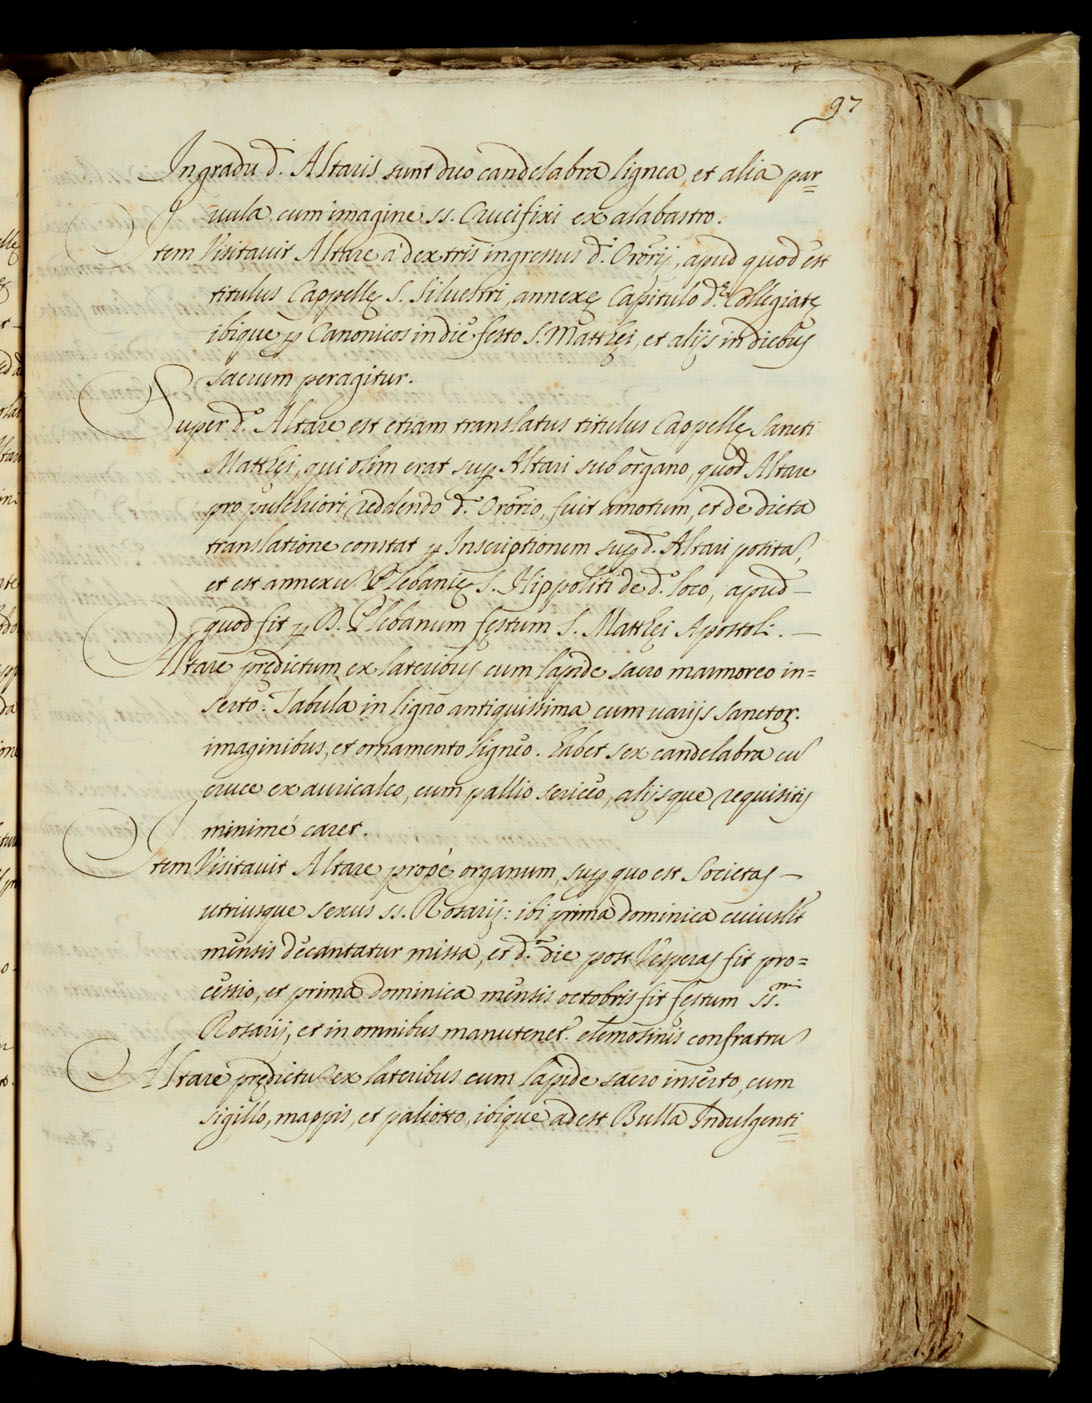 97
In gradu d.i Altaris sunt duo candelabra lignea, et alia par=
uula, cum imagine ss. Crucifixi ex alabastro.
Item Visitauit Altare à dextris ingressus d.i Orõrij, apud quod est
titulus Cappellę S. Siluestri, annexę Capitulo d.ę Collegiatę
ibique ꝑ Canonicos in die festo S. Matthęi, et alijs in diebus
sacrum peragitur.
Super d.o Altare est etiam translatus titulus Cappellę Sancti
Matthęi, qui olim erat suꝑ Altari sub organo, quod Altare
pro pulchriori reddendo d.o Orõrio, fuit amotum, et de dicta
translatione constat ꝑ Inscriptionem suꝑ d.o Altari positã,
et est annexũ Plebanię S. Hippoliti de d.o loco, apud —
quod fit ꝑ D. Plebanum festum S. Matthęi Apostoli. —
Altare prędictum ex lateribus cum lapide sacro marmoreo in=
serto. Tabula in ligno antiquissima cum varijs Sanctor.
imaginibus, et ornamento ligneo. habet sex candelabra cũ
cruce ex auricalco, cum pallio sericeo, alijsque requisitis
minimé caret.
Item Visitauit Altare propè organum, suꝑ quo est Societas —
utriusque sexus ss. Rosarij: ibi prima dominica cuiuslit
mensis decantatur missa, et d.a die post Vesperas fit pro=
cessio, et prima Dominica mensis octobris fit festum SS.mi
Rosarij, et in omnibus manutenet. elemosinis confratrũ
Altare prędictũ ex lateribus cum lapide sacro inserto, cum
sigillo, mappis, et paliotto, ibique adest Bulla Indulgenti=